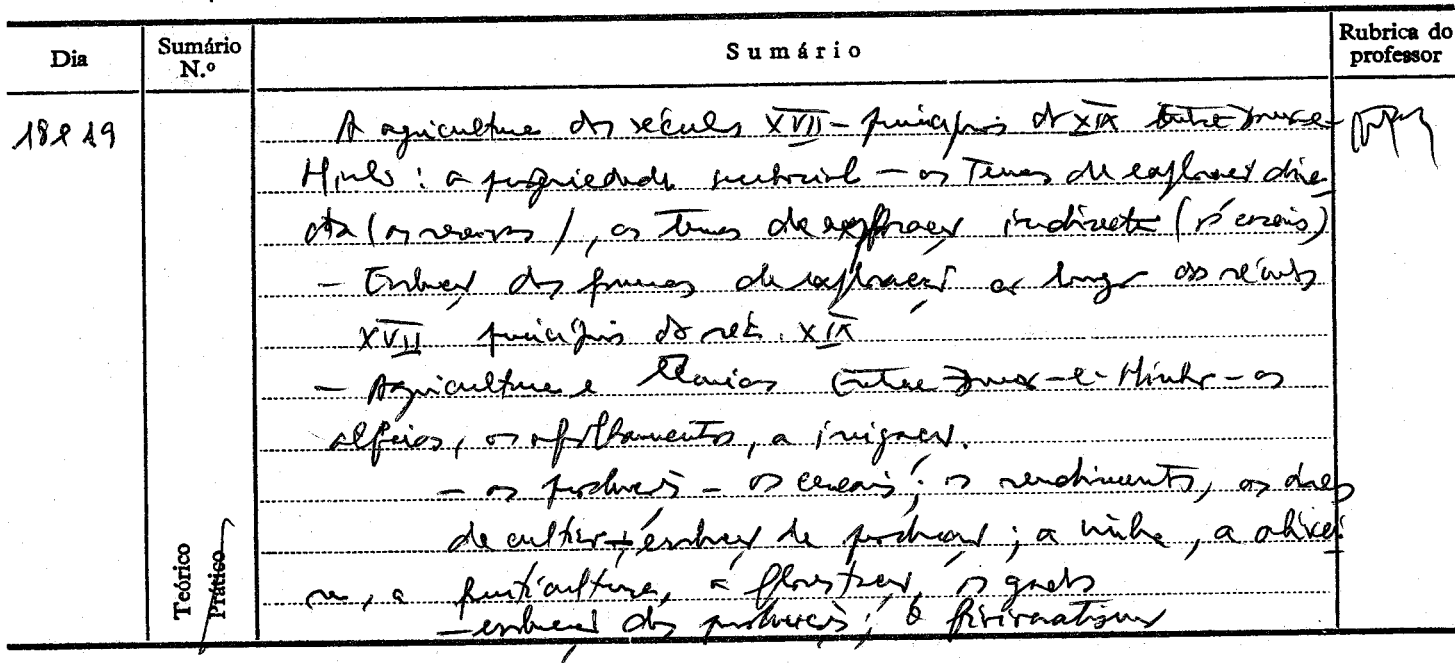 Dia Sumário N.º Sumário Rubrica do professor
18 e 19 A agricultura dos séculos XVII - princípios do XIX Entre Douro-e-
Minho: a propriedade senhorial - as Terras de exploração dire-
cta (as reservas), as terras de exploração indirecta (os casais)
- Evolução das formas de exploração ao longo dos séculos
XVII princípios do séc. XIX
- Agricultura e técnicas Entre-Douro-e-Minho - as
alfaias, os afolhamentos, a irrigação.
- as produções - os cereais; os rendimentos, as áreas
de cultivo; evolução da produção; a vinha, a olivicul
tura, a fruticultura, a florestação, os gados
- evolução das produções; o
Teórico
Prático